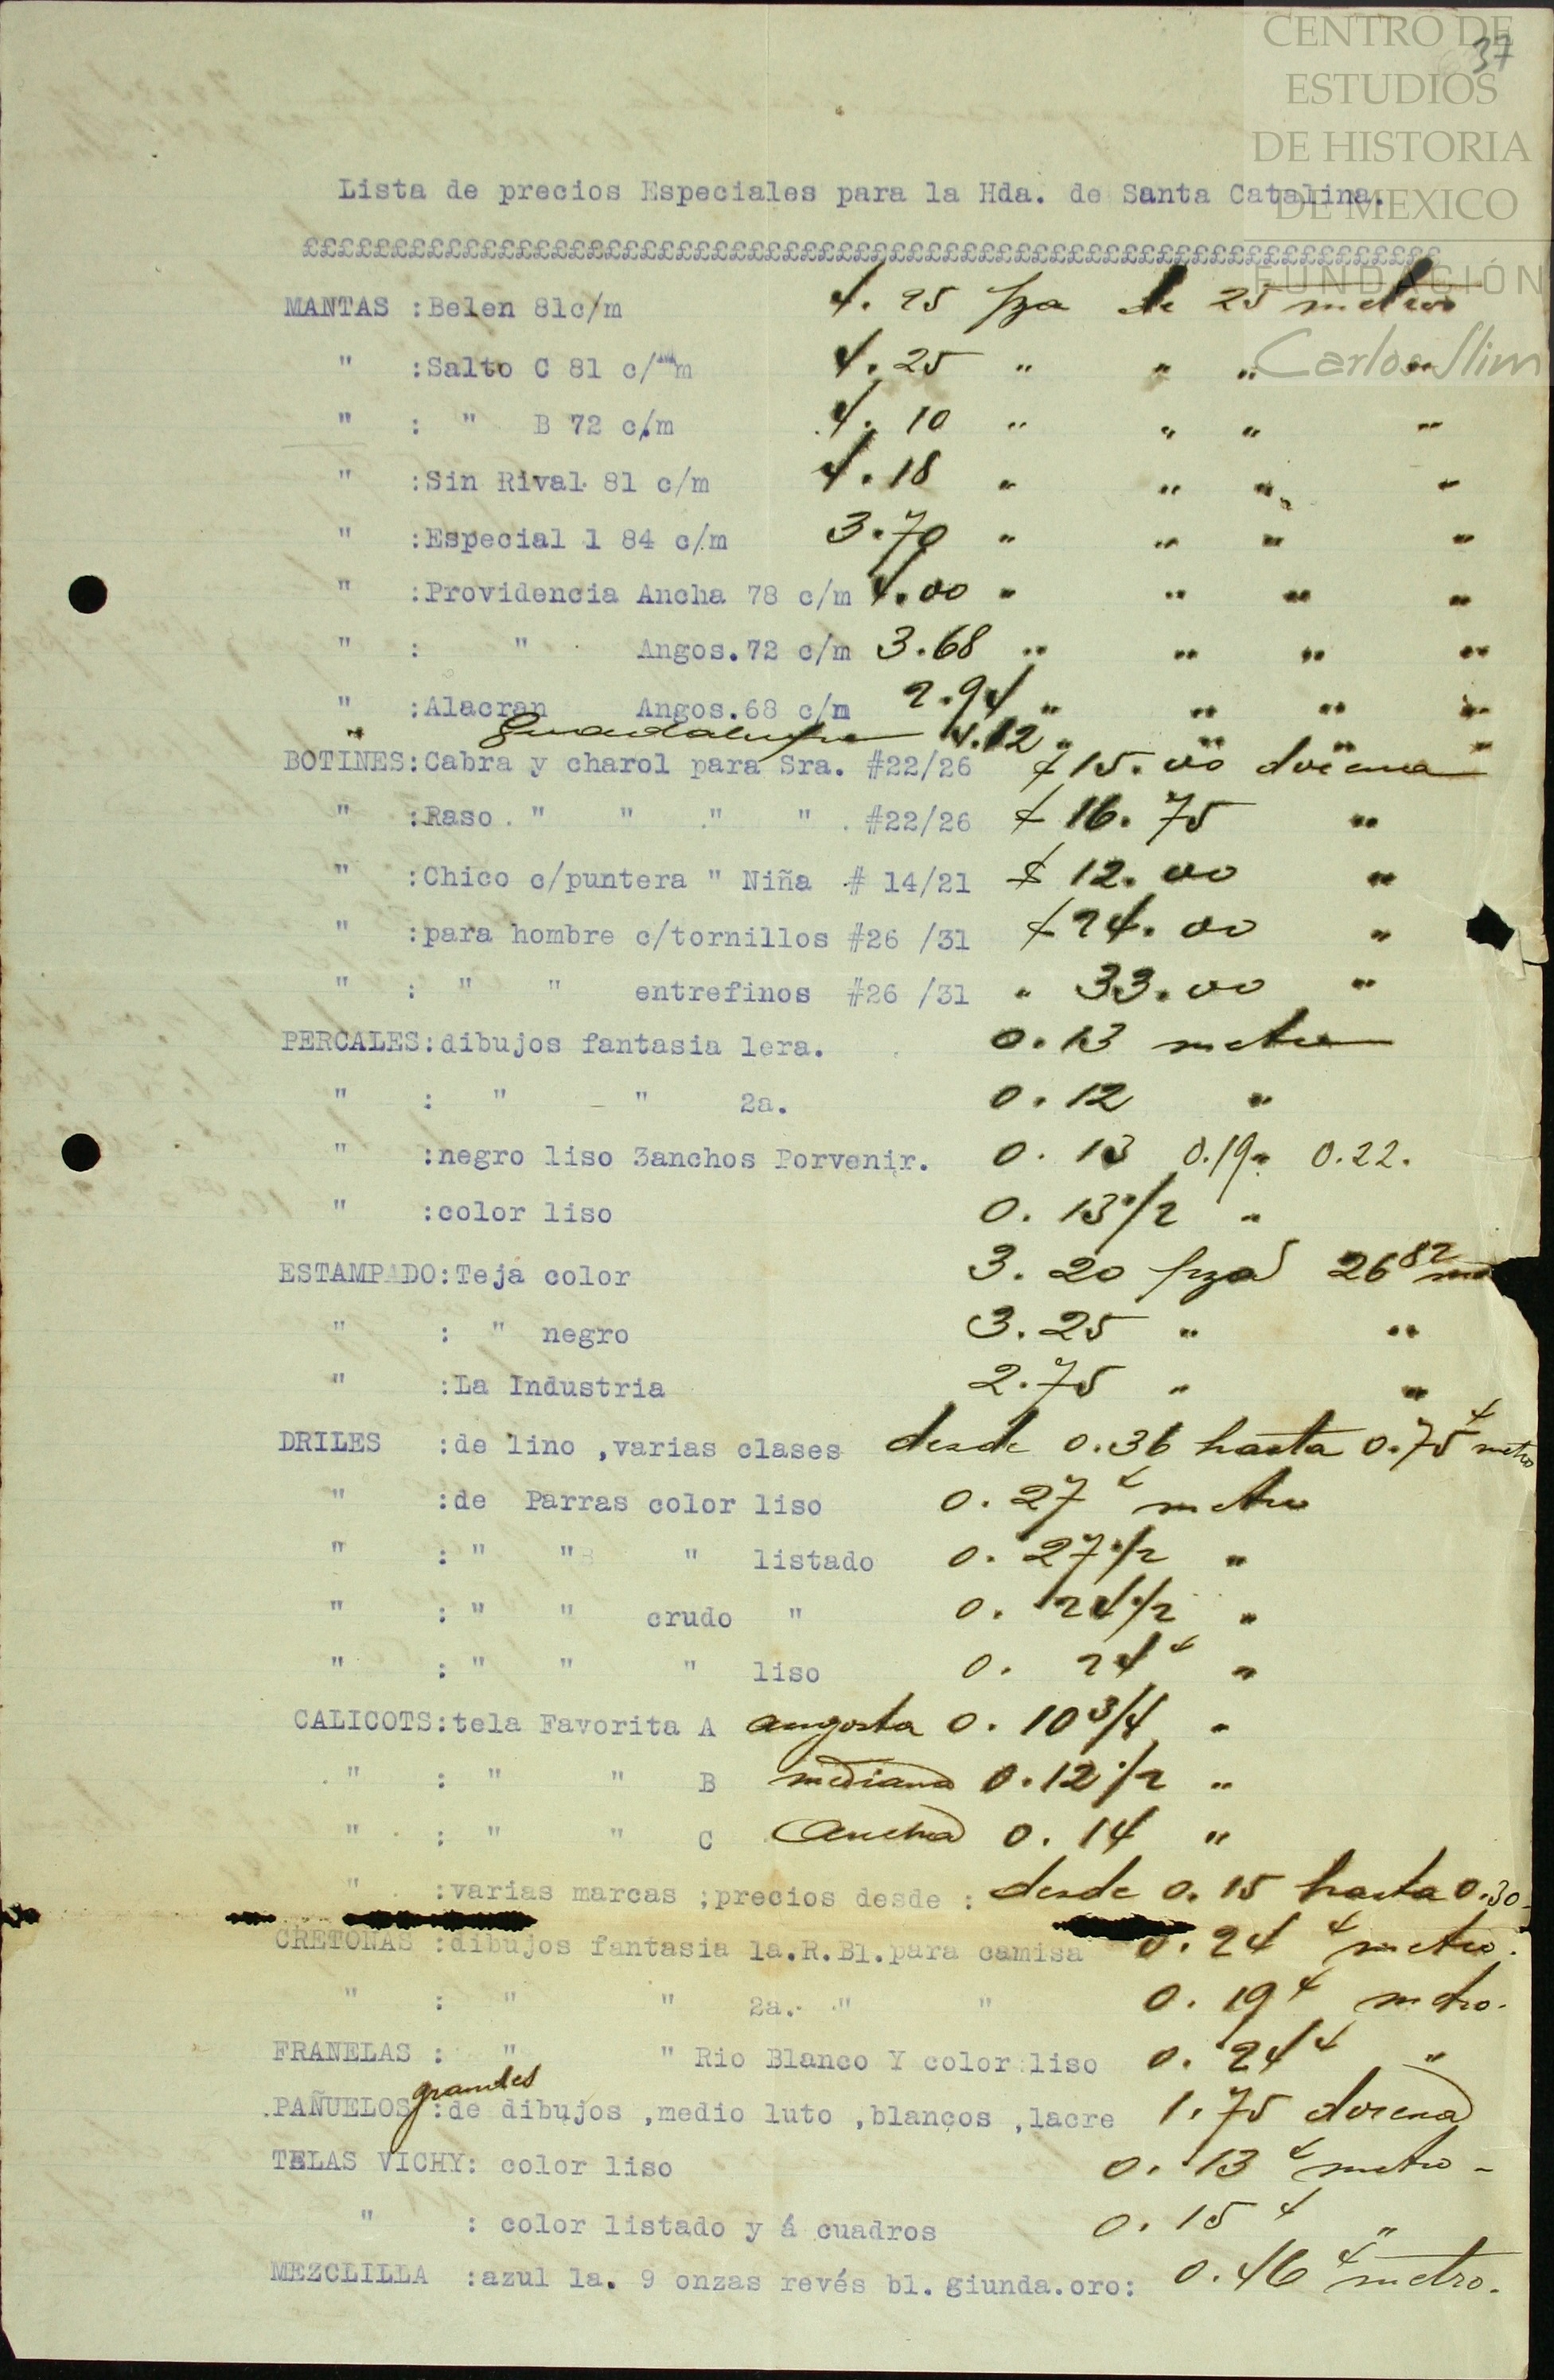 CENTRO DE
ESTUDIOS
DE HISTORIA
DE MEXICO
FUNDACIÓN
Carlos Slim
37
Lista de precios Especiales para la Hda. de Santa Catalina.
£££££££££££££££££££££££££££££££££££££££££££££££££££££££££££££££££
MANTAS :Belen 81c/m 4.25 pza de 25 metros
" :Salto C 81 c/m 4.25 " " " "
" : " B 72 c/m 4.10 " " " "
" :Sin Rival 81 c/m 4.18 " " " "
" :Especial 1 84 c/m 3.70 " " " "
" :Providencia Ancha 78 c/m 4.00 " " " "
" : " Angos.72 c/m 3.68 " " " "
" :Alacran Angos.68 c/m 2.94 " " " "
" Guadalupe 4.12 " " " "
BOTINES:Cabra y charol para Sra. #22/26 $ 15.00 docena
" :Raso " " " " #22/26 $ 16.75 "
" :Chico c/puntera " Niña # 14/21 $ 12.00 "
" :para hombre c/tornillos #26 /31 $ 24.00 "
" : " " entrefinos #26 /31 " 33.00 "
PERCALES:dibujos fantasia 1era. 0.13 metro
" : " " 2a. 0.12 "
" :negro liso 3anchos Porvenir. 0.13 0.19 " 0.22.
" :color liso 0.13 1/2 "
ESTAMPADO:Teja color 3.20 pza 26 82
" : " negro 3.25 " "
" :La Industria 2.75 " "
DRILES :de lino ,varias clases desde 0.36 hasta 0.75 metro
" :de Parras color liso 0.27 metro
" : " " " listado 0.27 1/2 "
" : " " crudo " 0.24 1/2 "
" : " " " liso 0.24 "
CALICOTS:tela Favorita A angosta 0.10 3/4 "
" : " " B mediana 0.12 1/2 "
" : " " C Ancha 0.14 "
" :varias marcas ;precios desde : desde 0.15 hasta 0.30
CRETONAS :dibujos fantasia 1a.R.Bl.para camisa 0.24 metro.
" : " " 2a. " " 0.19 metro.
FRANELAS : " " Rio Blanco Y color liso 0.24 "
grandes
PAÑUELOS :de dibujos ,medio luto ,blancos ,lacre 1.75 docena
TELAS VICHY: color liso 0.13 metro -
" : color listado y á cuadros 0.15 "
MEZCLILLA :azul 1a. 9 onzas revés bl. giunda.oro: 0.46 metro.